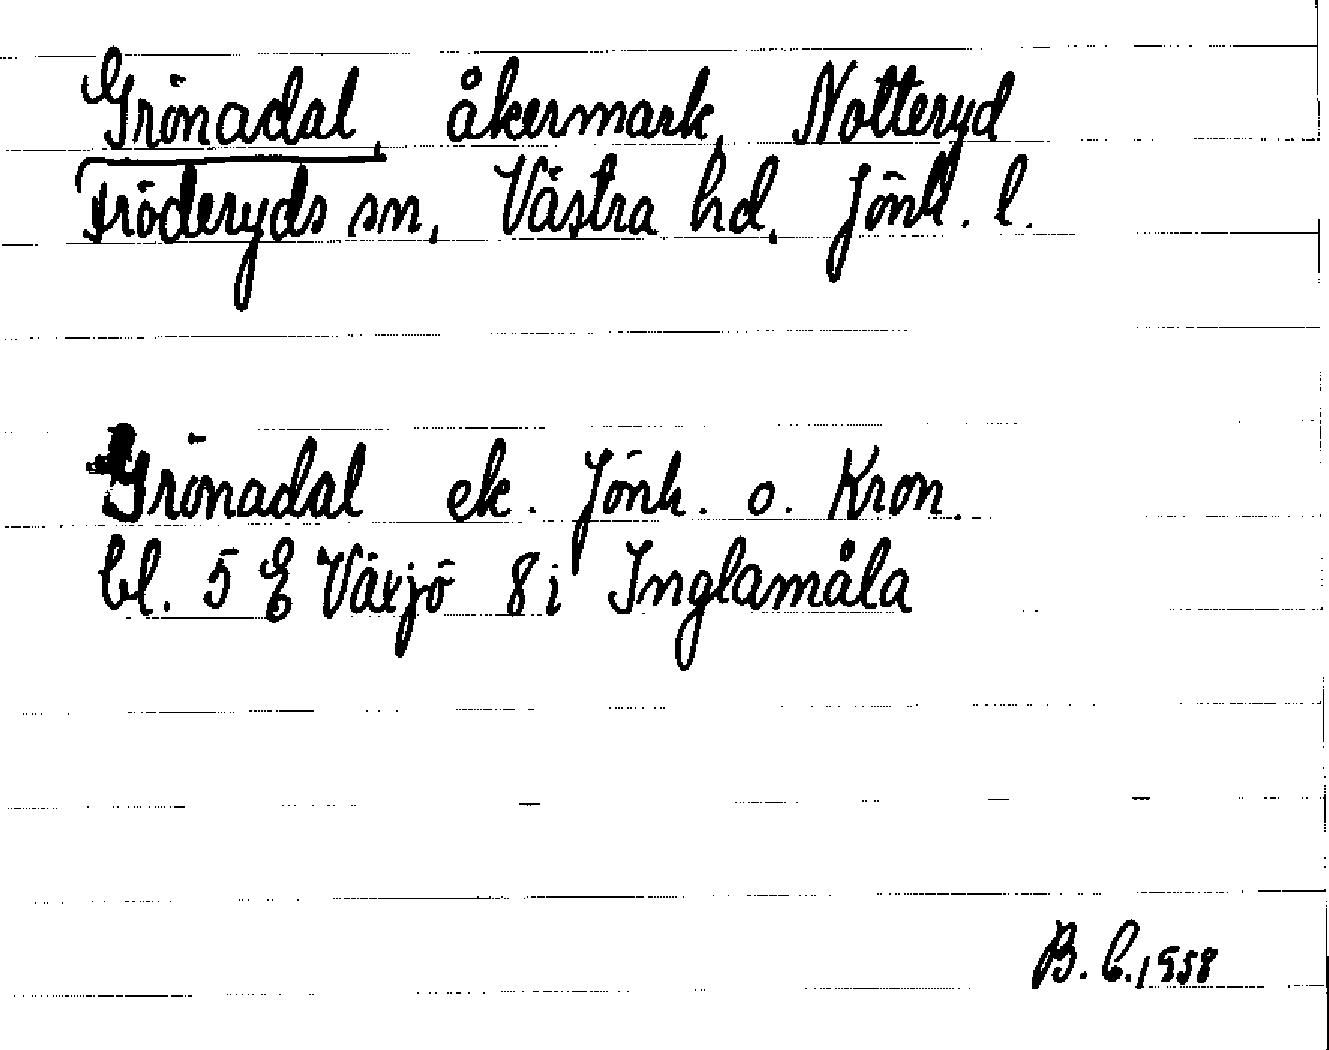 Grönadal, åkermark, Notteryd
Fröderyds sn, Västra hd, Jönk. l.
Grönadal ek. Jönk. o. Kron.
bl. 5 E Växjö 8 i Inglamåla
B. C. 1958